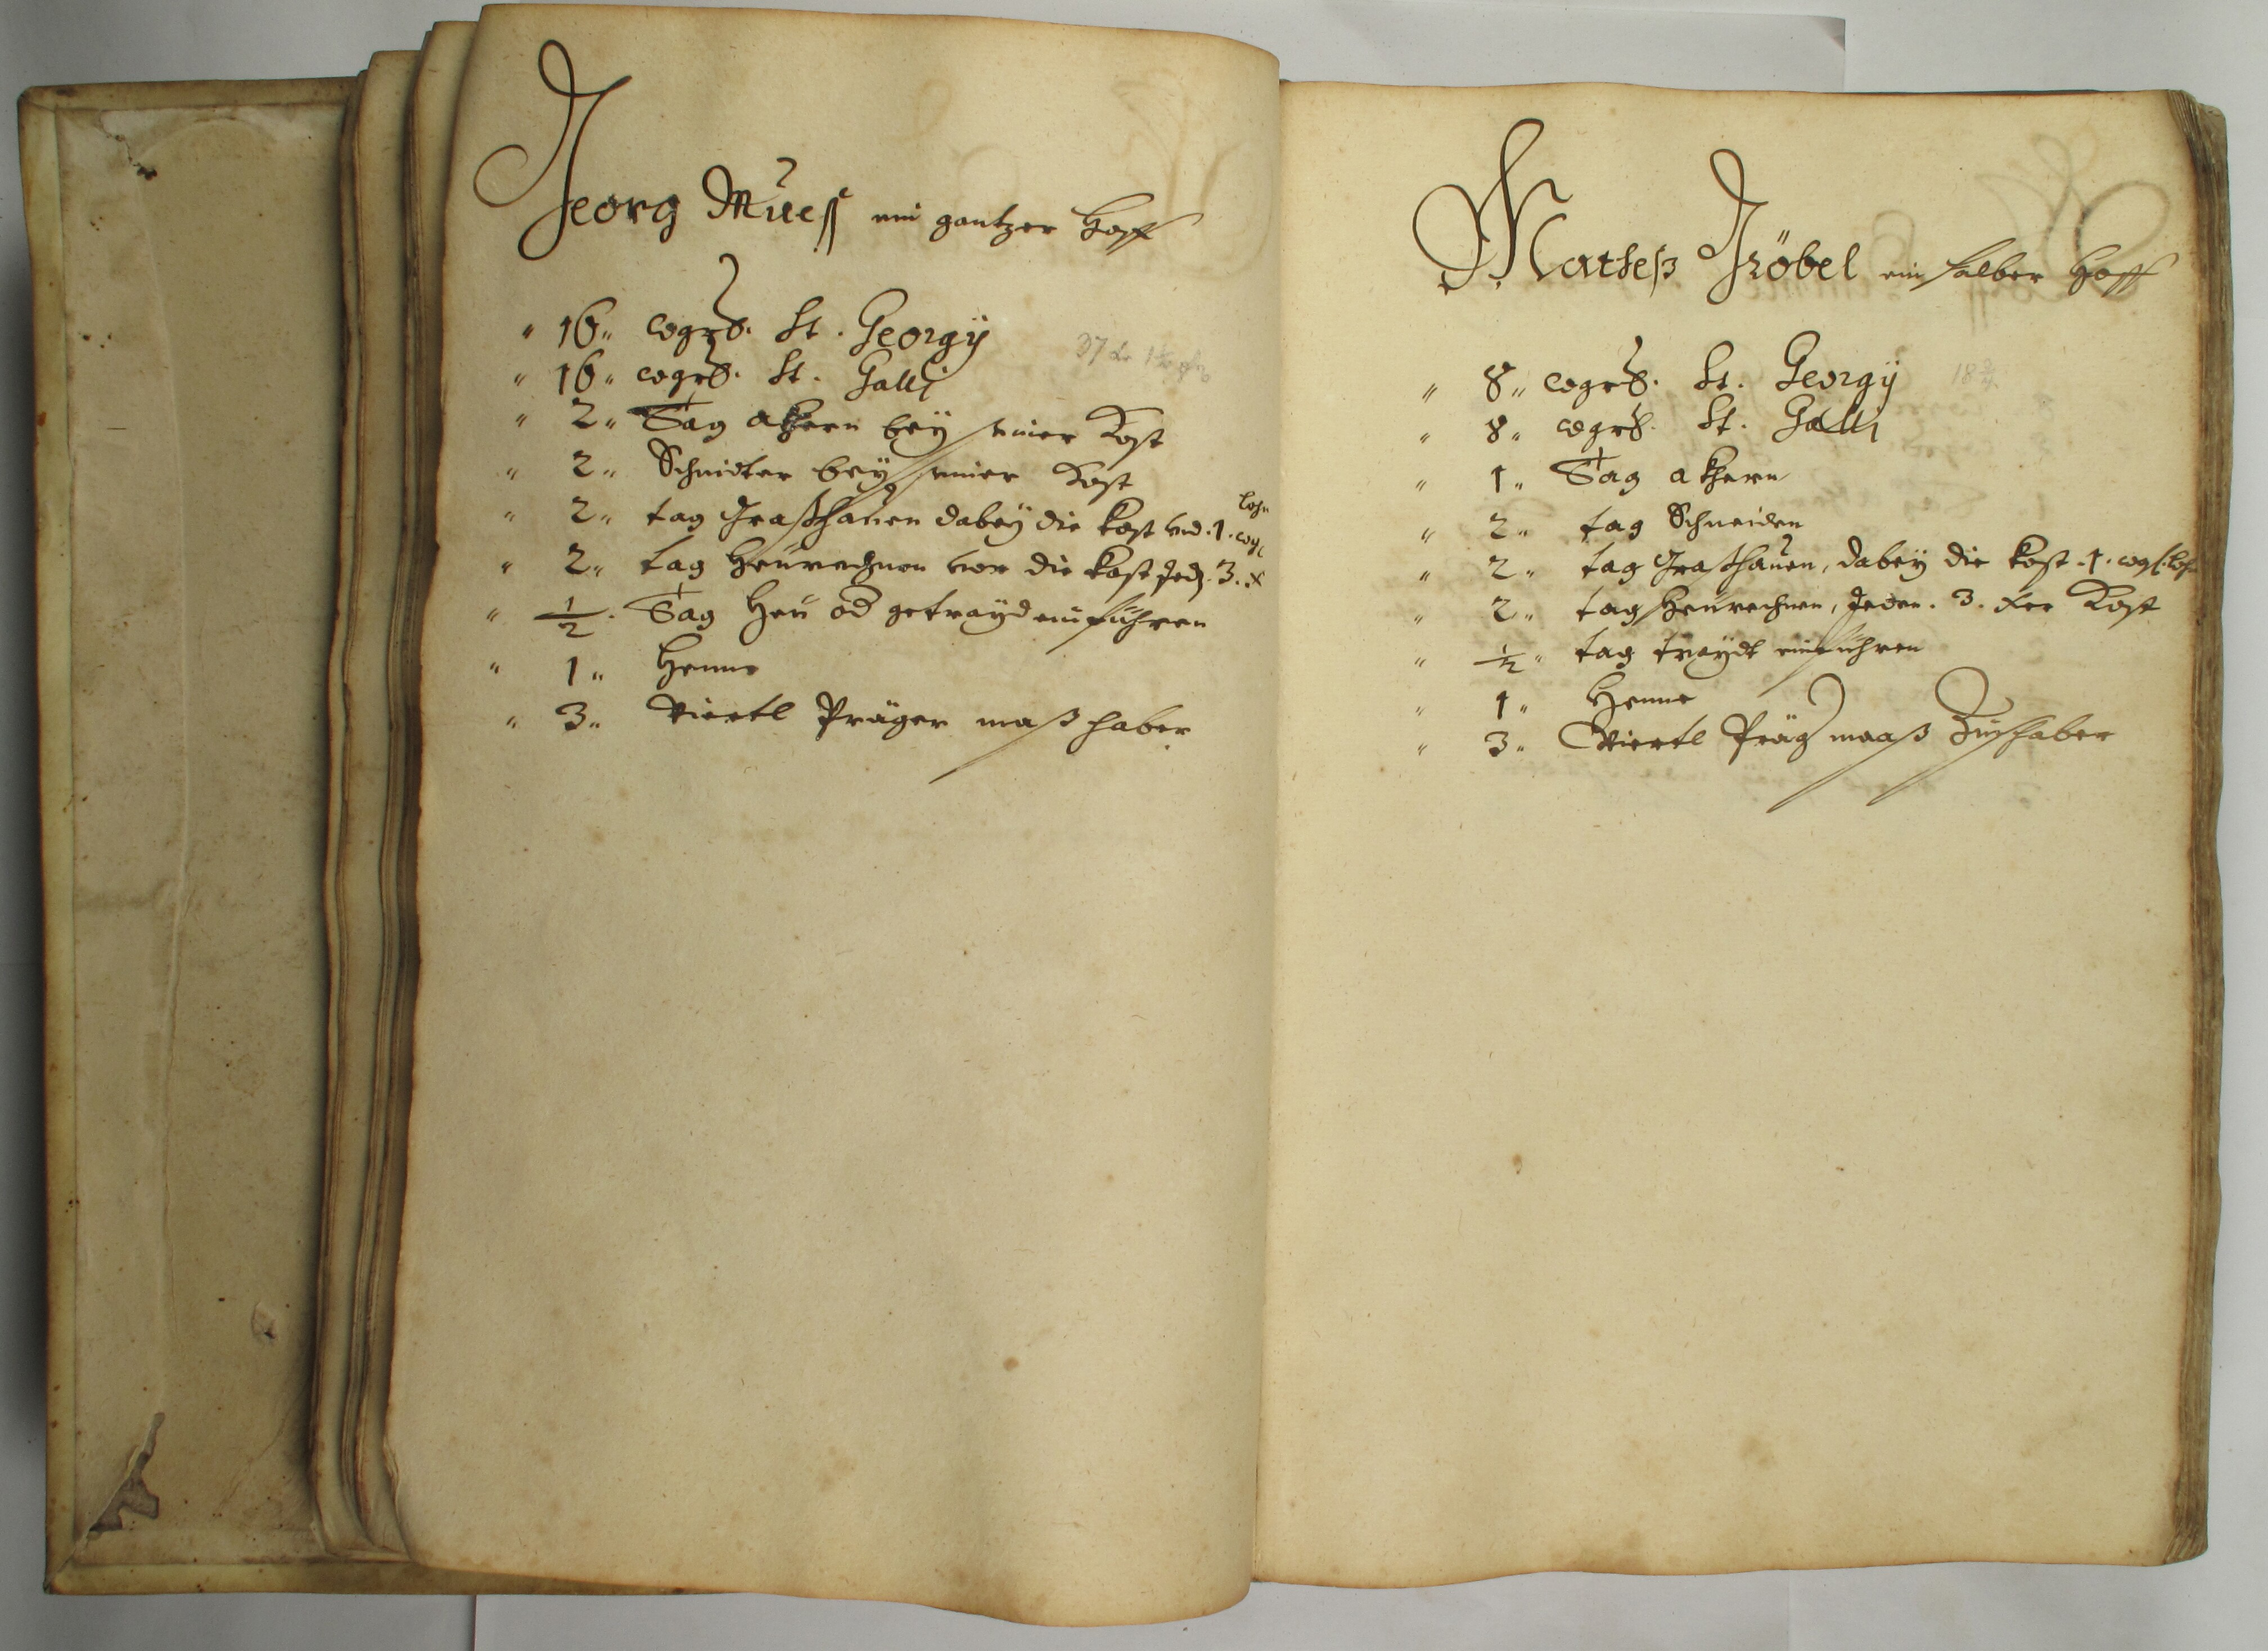 Georg Muess ein gantzer Hoff
" 16 " wgrß. St. Georgÿ
" 16 " wgrß. St. Galli
" 2 " Tag akhern beÿ seiner Kost
" 2 " Schnidter beÿ seiner Kost
" 2 " tag Graßhauen dabeÿ die kost vnd .1. wgl lohn
" 2 " tag Heurechnen vor die kost Jedn. 3. x
" 1/2 . Tag Heu od getrayd einführen
" 1 " Henne
" 3 " Viertl Präger maß haber
Matheß Gröbel ein halber Hoff
" 8 " wgrß. St. Georgÿ 18 3/4
" 8 " wgrß. St. Galli
" 1 " Tag akhern
" 2 " tag Schneiden
" 2 " tag Graßhauen, dabeÿ die kost .1. wgl. lohn
" 2 " tag Heurechnen, Jeden . 3. xer Kost
" 1/2 " tag traydt einführen
" 1 " Henne
" 3 " Viertl Präg maaß Zinßhaber